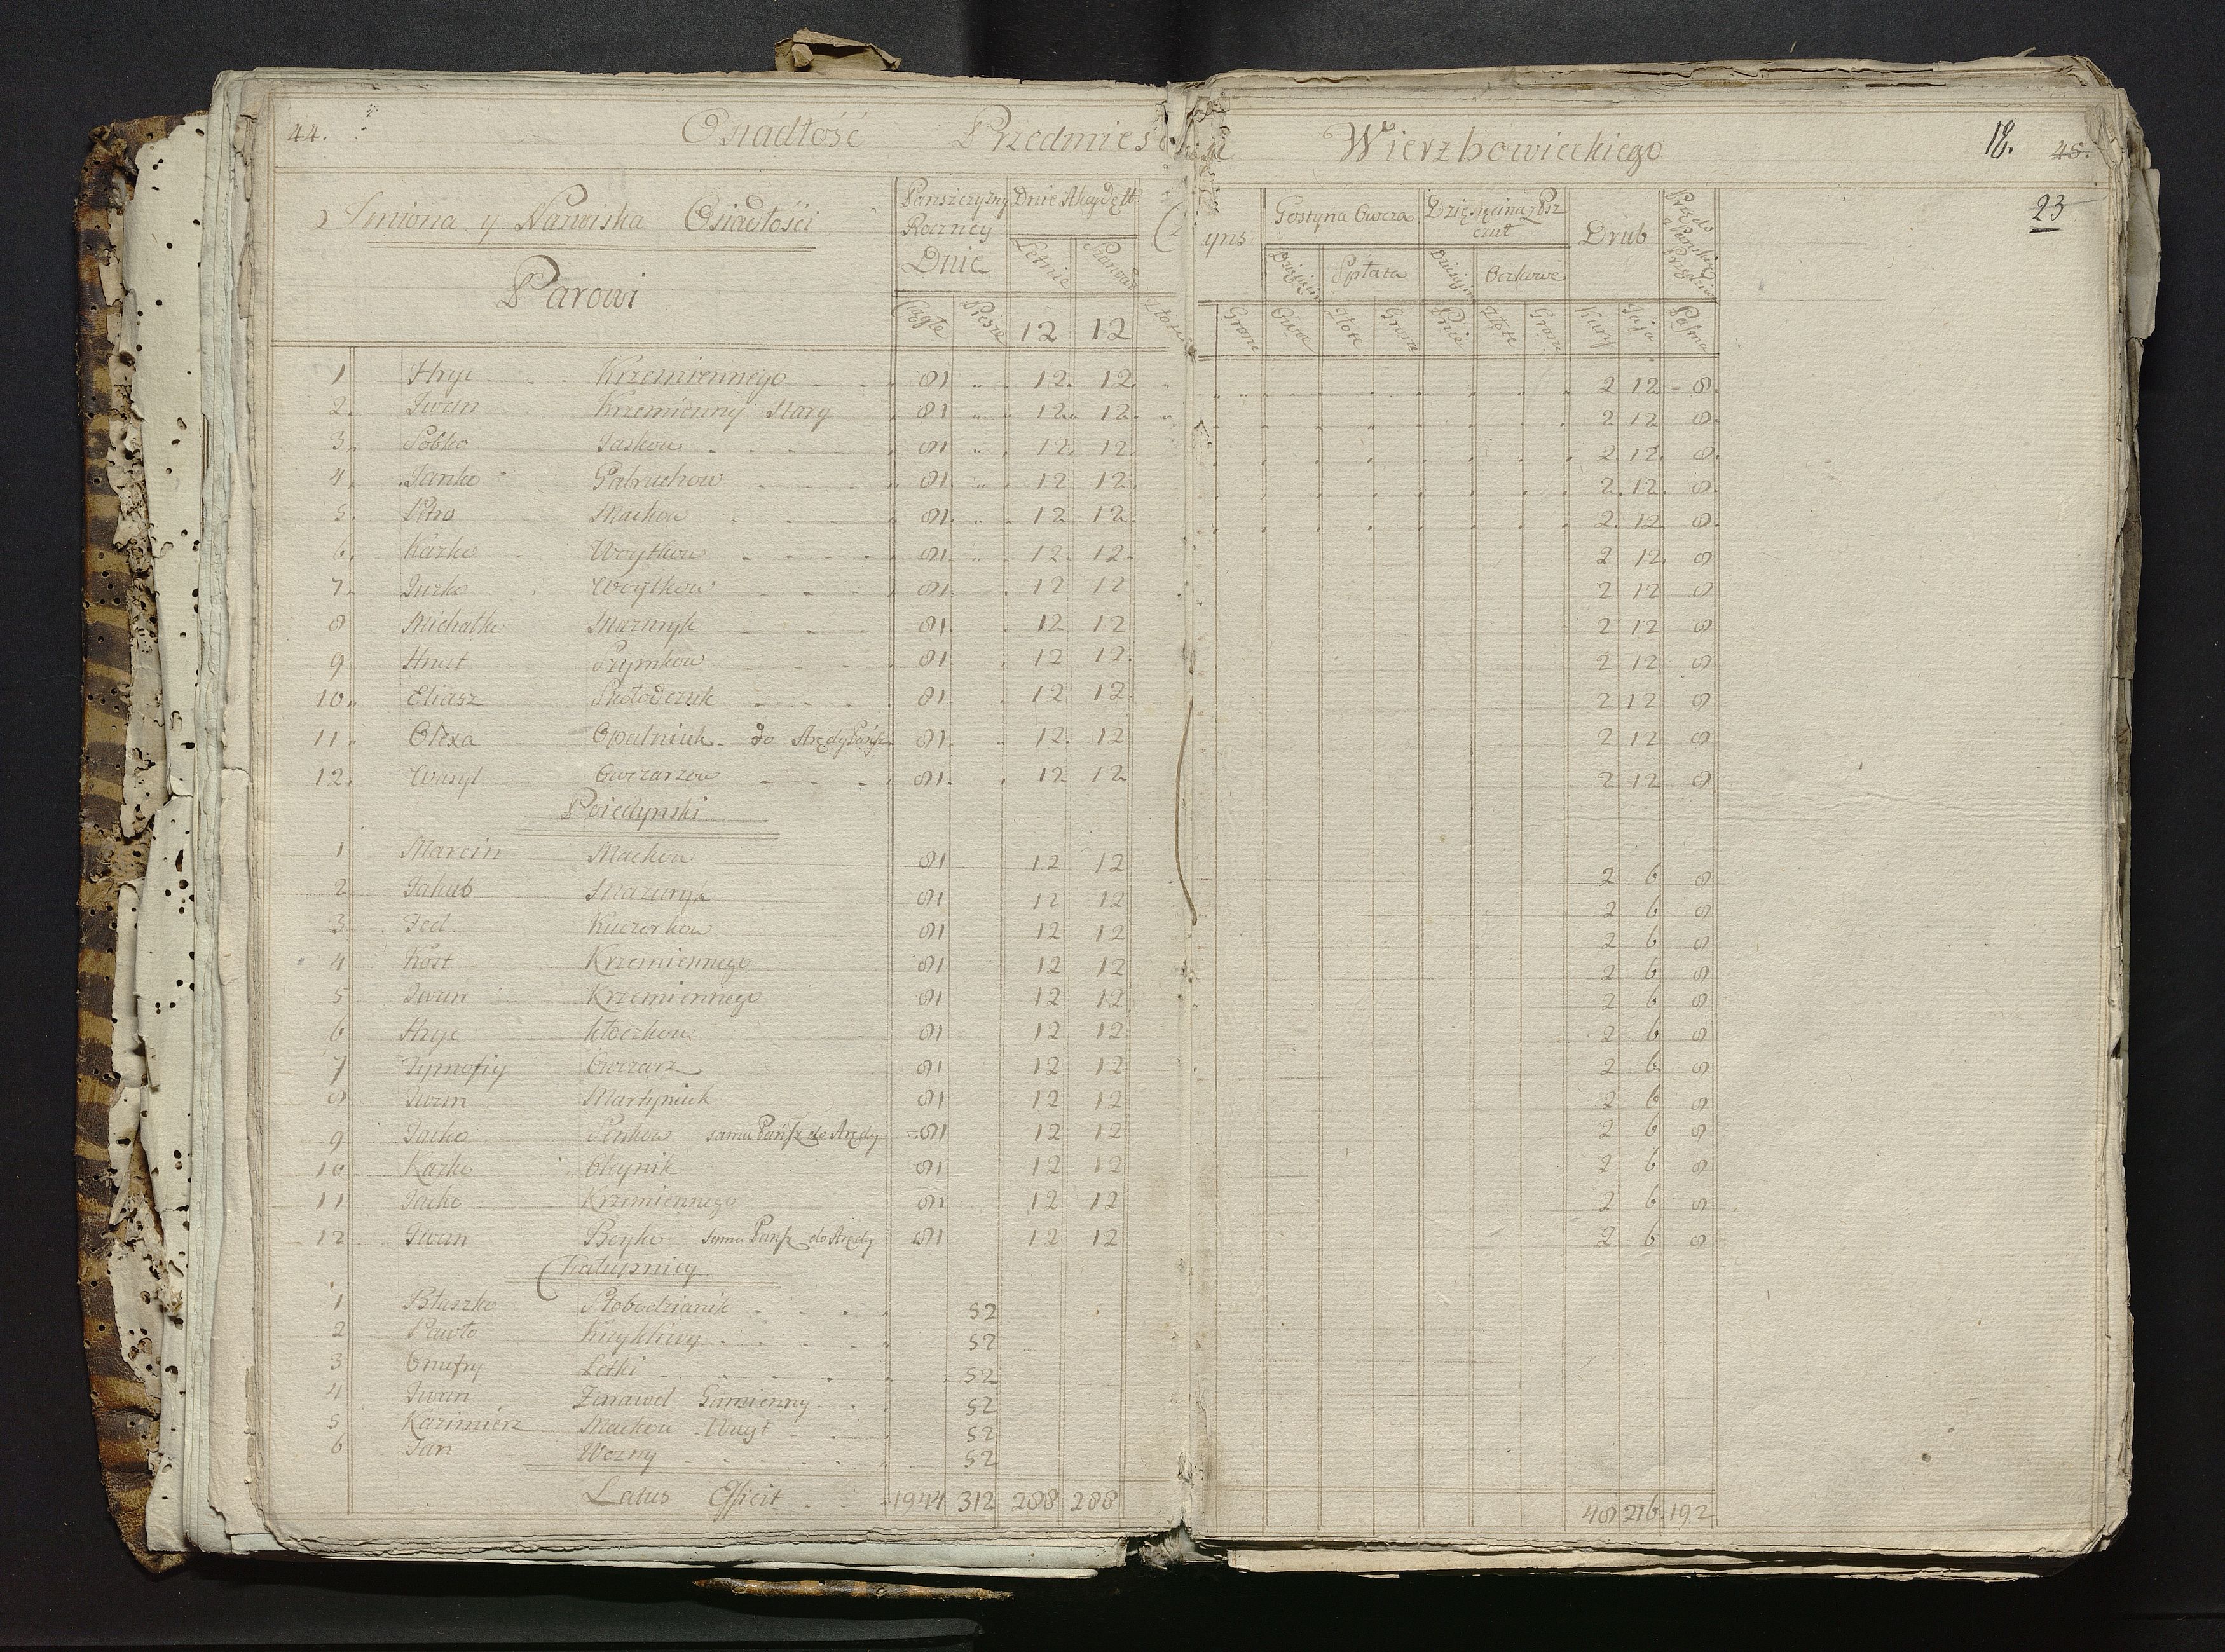 44. Osiadłość Przedmieś Wierzbowieckiego 18. 45.
23
Imiona y Nazwiska Osiadłości
Parowi
Pańszczyzny Roczney Dnie
Ciągłe Piesze
Dnie
Letnie
12 12
Złote
yns
Grosze
Gostyna Owcza
Owca
Spłata
Złote Grosze
Dnie
Oczkowe
Złote Grosze
Drub
Kury Jaja
Pasma
1 Hryc Krzemiennego 81 12. 12. 2 12 8.
2. Iwan Krzemienny Stary 81 12. 12. 2 12 8.
3. Sobko Jaskow 81 12. 12. 2. 12. 8.
4. Janko Gabruchow 81. 12 12. 2. 12. 8.
5. Petro Maćkow 81. 12 12. 2. 12 8.
6. Kazko Woytkow 81. 12. 12. 2 12. 8
7. Jurko Woytkow 81. 12 12 2 12 8
8 Michałko Mazuryk 81. 12 12 2 12 8
9 Hnat Szymkow 81. 12 12. 2 12 8
10. Eliasz Skołodczuk 81. 12 12. 2 12 8
11. Olexa Opalniuk do Arędy Pańsz 81. 12. 12 2 12 8
12. Wasyl Owczarzow 81. 12 12 2 12 8
Poiedynski
1 Marcin Maćkow 81 12 12 2 6 8
2 Jakub Mazuryk 81 12 12 2 6 8
3 Fed Kuczerkow 81 12 12 2 6 8
4 Kost Krzemiennego 81 12 12 2 6 8
5 Iwan Krzemiennego 81 12 12 2 6 8
6 Hryc Kłoczkow 81 12 12 2 6 8
7 Tymofiy Owczarz 81 12 12 2 6 8
8 Iwan Martyniuk 81 12 12 2 6 8
9 Jacko Senkow sama Pańsz do Arędy 81 12 12 2 6 8
10 Kazko Oleynik 81 12 12 2 6 8
11 Jacko Krzemiennego 81 12 12 2 6 8
12 Iwan Boyko sama Pańsz do Arędy 81 12 12 2 6 8
Chałupnicy
1 Błaszko Słobodzianik 52
2 Pawło Krykliwy 52
3 Onufry Letki 52
4 Iwan Gumienny 52
5 Kazimierz Maćkow Woyt 52
6 Jan Wozny 52
Latus Efficit 1944 312 288 288 48 216 192